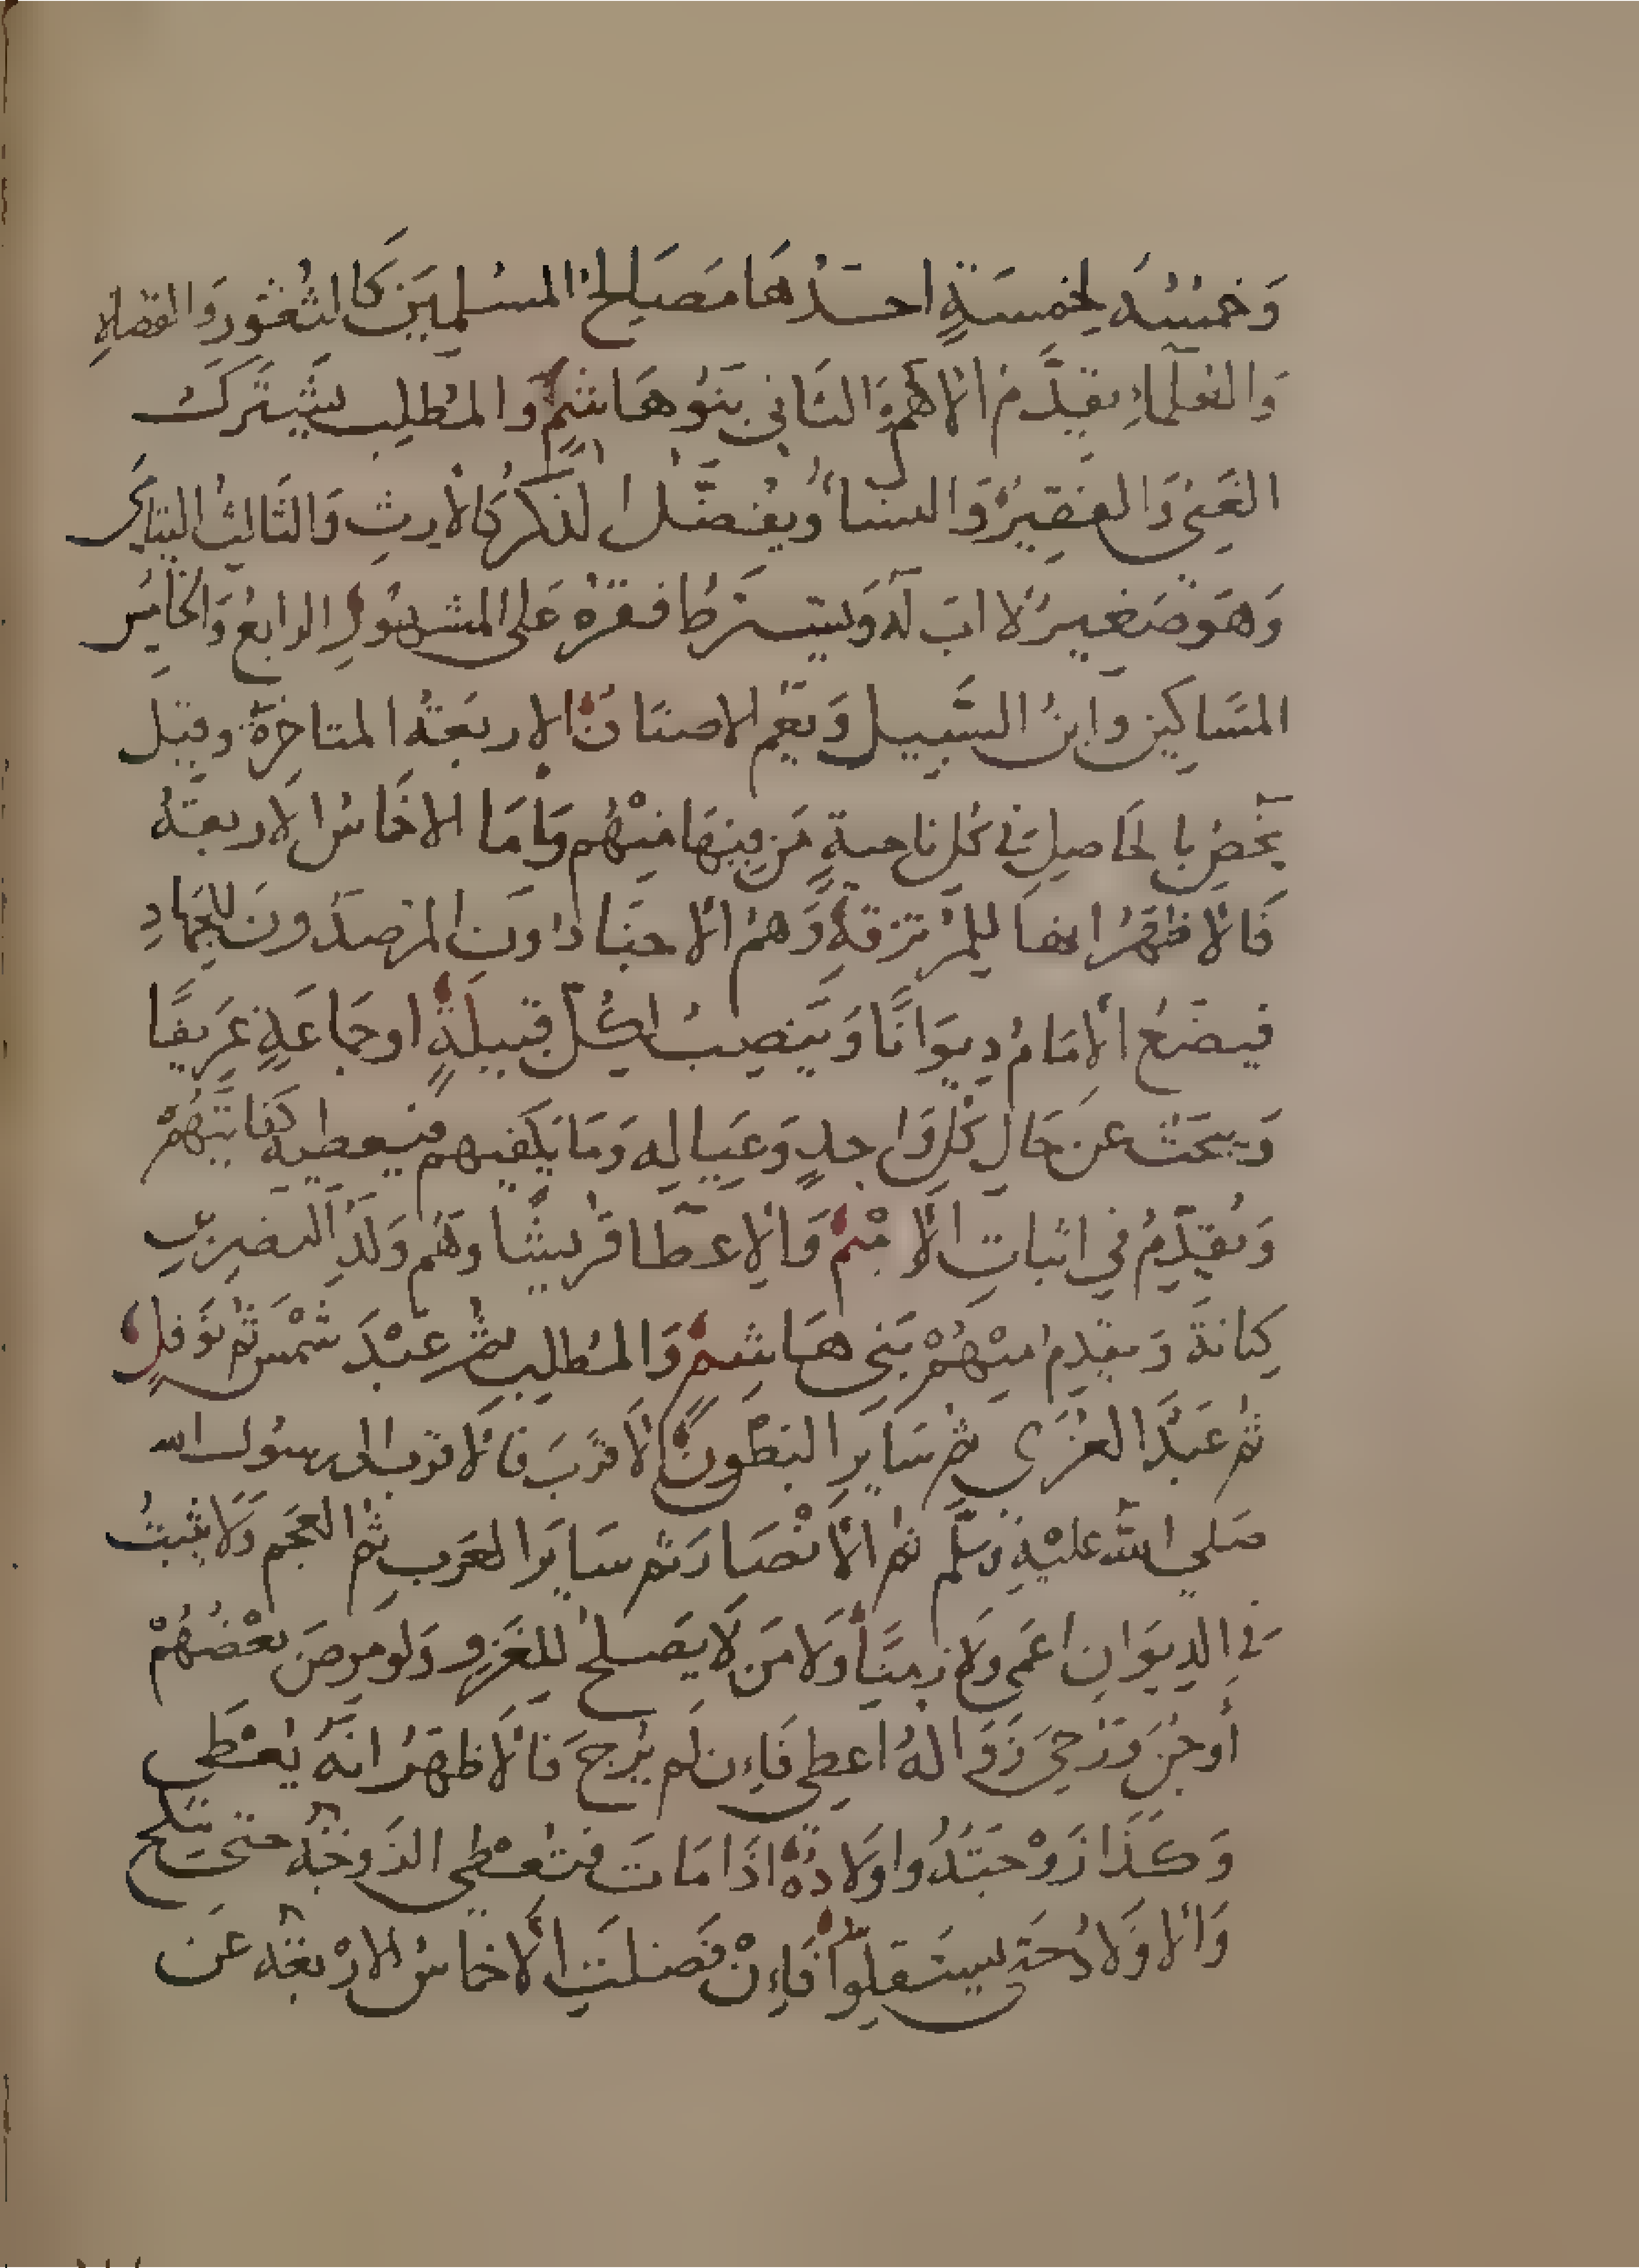 وَخُمْسُهُ لِخَمْسَةٍ احَدُهَا مَصَالِحُ المسْلِمِيَن كَالثغُور وَالقضاةِ
وَالعُلَمَاءِ يقَدَّمُ الاهَم وَالثَانى بَنوُ هَاشِمٍ وَالمُطلِب يشَتَركُ
الغَنِى وَالفَقِيرُ وَالنسَا وُيفضَّل الذكرُ كَالاْرثِ وَالثَالثُ اليتامَى
وَهوَ صَغيرٌ لا ابَ لَهُ وَيشترَطُ فقرُهُ عَلى المشهوُرِ الرابعُ وَالخامِسُ
المسَاكِين وابنُ السَّبِيل وَيَعُم الاصنَافَ الاربَعَةُ المتاخرَةُ وقيل
يَخُصُ بالحَاصِلِ فى كُل ناحيةٍ مَن فِيهَا مِنْهُم وَاَمَا الاخَماسُ الاَربعَةُ
فَالاْظهَرُ انهَا لِلمرُتزقةِ وَهُمُ الاْجنَادُ ونَ المرْصَدُونَ للجهَادِ
فيضَعُ الاْمَامُ دِيوَانًا وَيَنصِبُ لِكُلّ قبيلةٍ او جماعَةٍ عَرِيفًا
وَيبحَثُ عن حَالِ كُلِ وَاحِدٍ وَعيَالِهِ وَمَا يَكفيهم فيعطيه كفايتَهُمْ
وَيُقدِّمُ فِي اثباتِ الاْسْمِ وَالاْعطَا قرُيشًا وَهُم وَلَدُ النضِر بن
كِنانَةَ وَيقدِم منْهُمْ بَنِى هَاشِمٍ وَالمُطلِبِ ثم عَبْدَ شَمْسٍ ثُم نوَفلٍ
ثُم عَبْدَ العُزَى ثم سَايِر البُطُونِ الاْقرَبَ فَالاْقربَ الى رسوُل الله
صَلي الله عَليْهِ وَسَلَّم ثُم الاْنْصَارَ ثم سَايِرَ العَرَبِ ثُم العجَم وَلَا يثبتُ
فى الدِيوَانِ اعَمى وَلا زَمِنًا وَلَا مَن لَا يَصلحُ لِلغَزِو وَلَو مرِضَ بعْضُهُمْ
أوجُنَ وَرُجِيَ زَوَالهُ اعطِى فَاِن لم يُرجَ فَالاْظهَرُ انهُ يُعْطَى
وَكَذا زَوْجَتُهُ واولادُهُ اذَا مَات فتُعْطى الزَوجَةُ حتى تنكح
وَالاْوَلادُ حَتى يستَقِلوُا فَاِنْ فَضَلَتِ الاْخماسُ الارْبعَةُ عَن